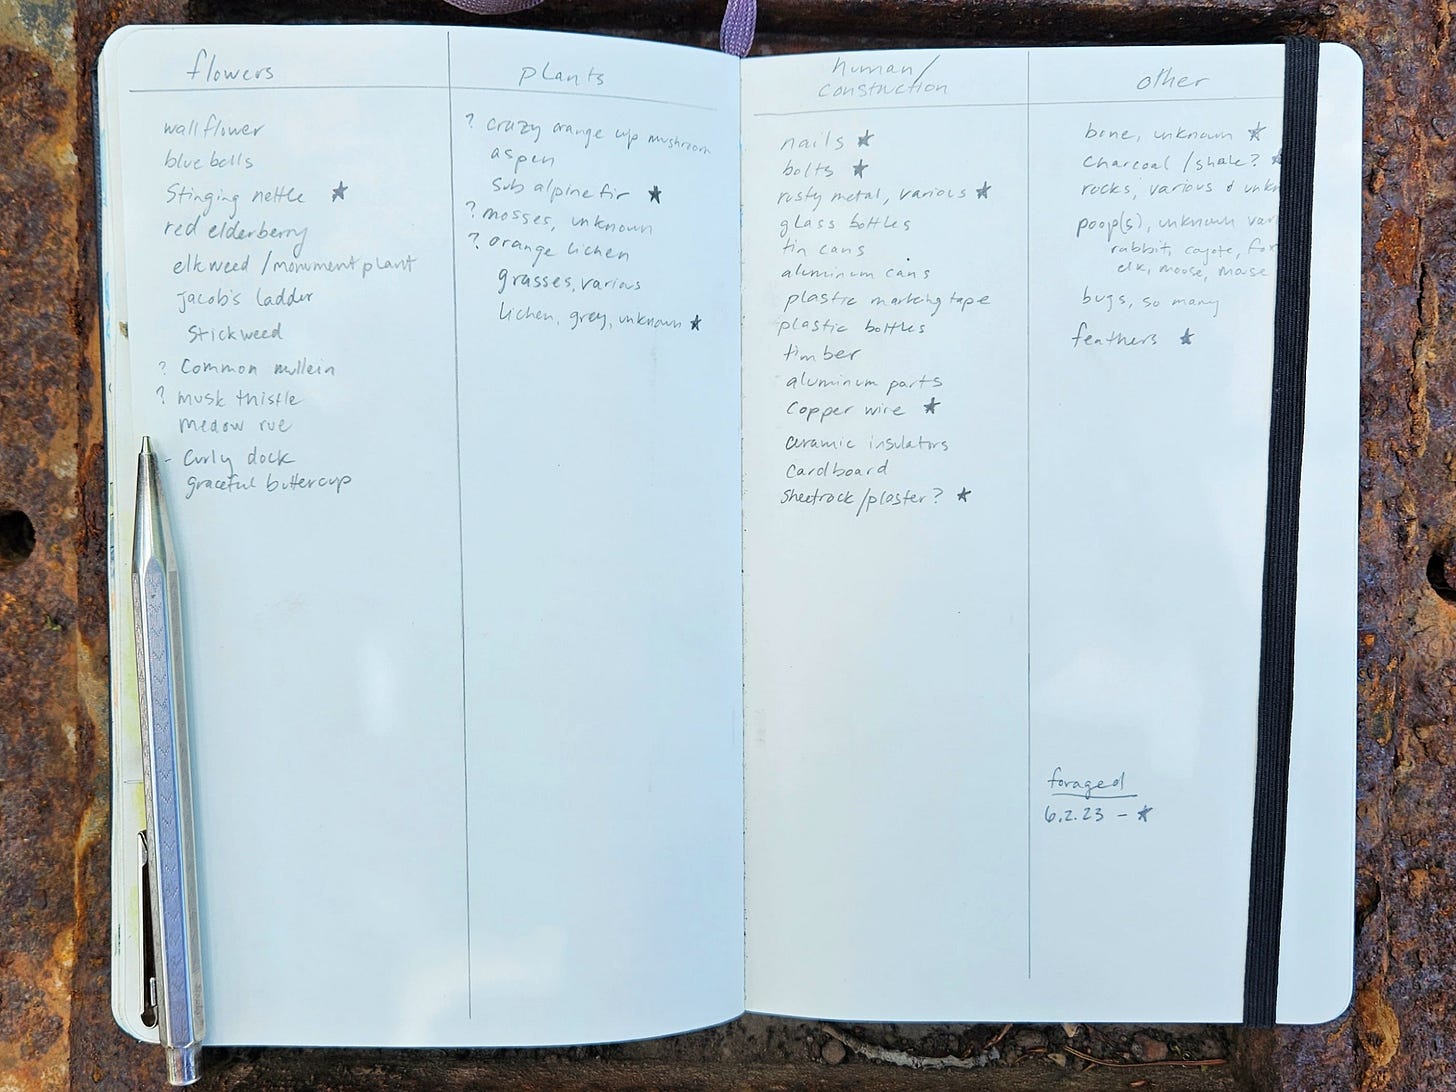 flowers
wallflower
blue bells
Stinging nettle ★
red elderberry
elkweed / monument plant
jacob's ladder
Stickweed
? Common mullein
? musk thistle
medow rue
- Curly dock
graceful buttercup
plants
? crazy orange cup mushroom
aspen
Sub alpine fir ★
? mosses, unknown
? orange lichen
grasses, various
lichen, grey, unknown ★
human/
construction
nails ★
bolts ★
rusty metal, various ★
glass bottles
tin cans
aluminum cans
plastic marking tape
plastic bottles
timber
aluminum parts
Copper wire ★
ceramic insulators
Cardboard
Sheetrock/plaster? ★
other
bone, unknown ★
Charcoal / shale? ★
rocks, various & unkn
poop(s), unknown var
rabbit, coyote, fox
elk, moose, mouse
bugs, so many
feathers ★
foraged
6.2.23 - ★